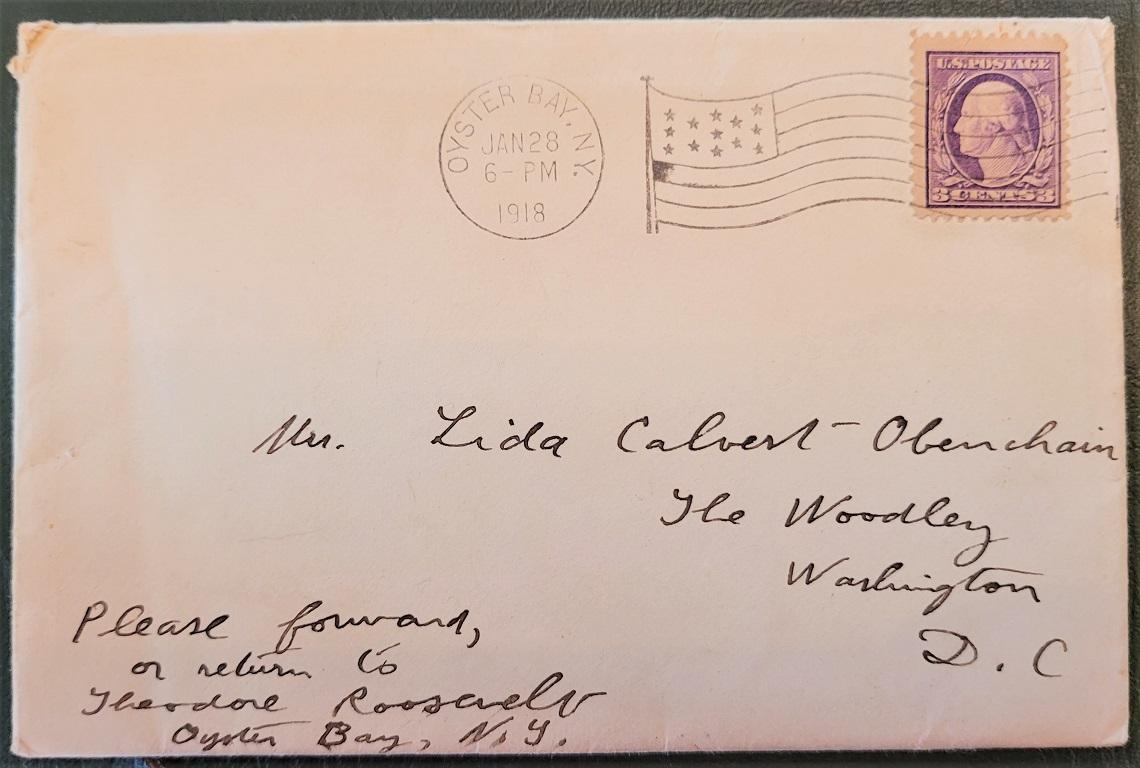 OYSTER BAY, N.Y.
JAN 28
6-PM
1918
U.S. POSTAGE
3 CENTS 3
Mrs. Lida Calvert-Obenchain
The Woodley
Washington
D. C
Please forward,
or return to
Theodore Roosevelt
Oyster Bay, N.Y.